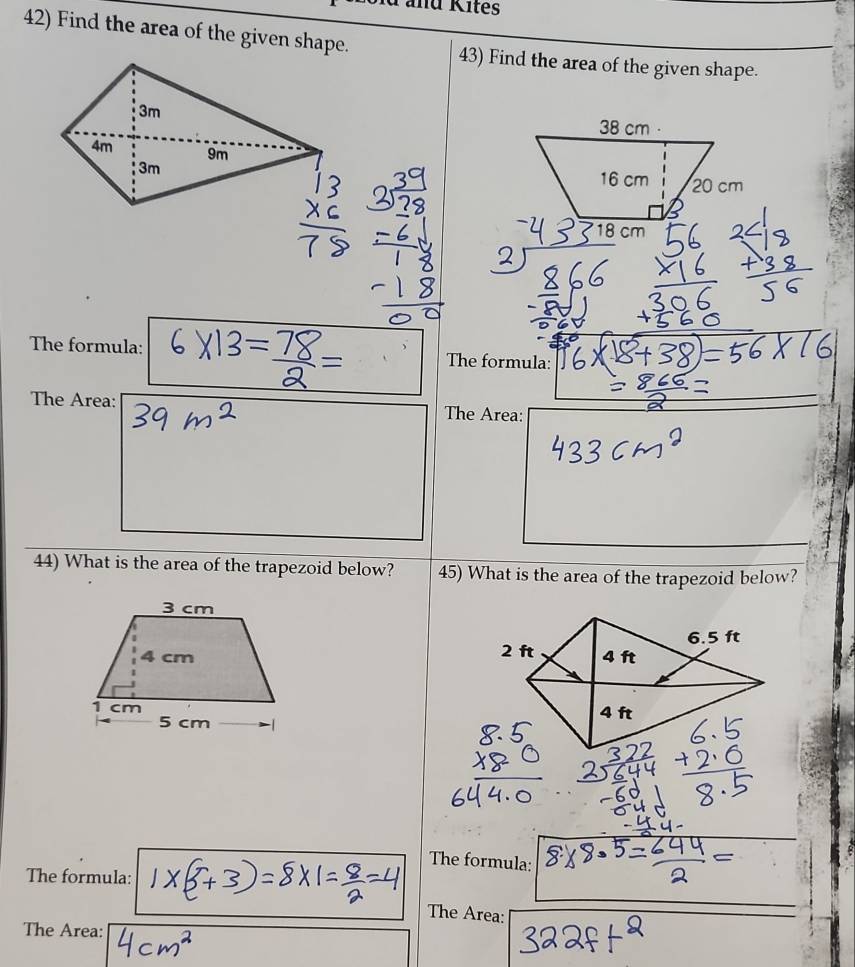 and Kites
42) Find the area of the given shape.
3m
4m
9m
3m
13
×6
78
39
2)78
-6
18
-18
00
The formula: 6×13=78/2=
The Area: 39 m²
43) Find the area of the given shape.
38 cm
16 cm
20 cm
18 cm
433
2)866
-8
06
56
×16
306
+560
18
+38
56
The formula: 16×(18+38)=56×16
=866/2=
The Area: 433 cm²
44) What is the area of the trapezoid below?
3 cm
4 cm
1 cm
5 cm
The formula: 1×(5+3)=8×1=8/2=4
The Area: 4cm²
45) What is the area of the trapezoid below?
2 ft
4 ft
6.5 ft
4 ft
8.5
×8 0
644.0
322
2)644
-6
04
-4
6.5
+2.0
8.5
The formula: 8×8.5=644/2=
The Area: 322ft²